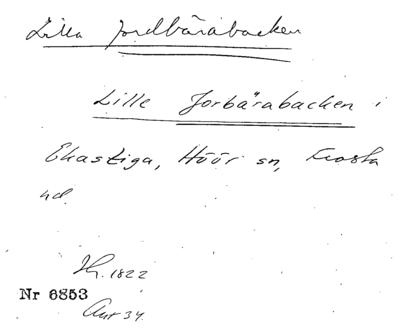 Lilla Jordbärabacken
Lille Jorbärabacken i
Ekastiga, Höör sn, Frosta
hd.
Jh. 1822
Nr 6853
Ant 34.